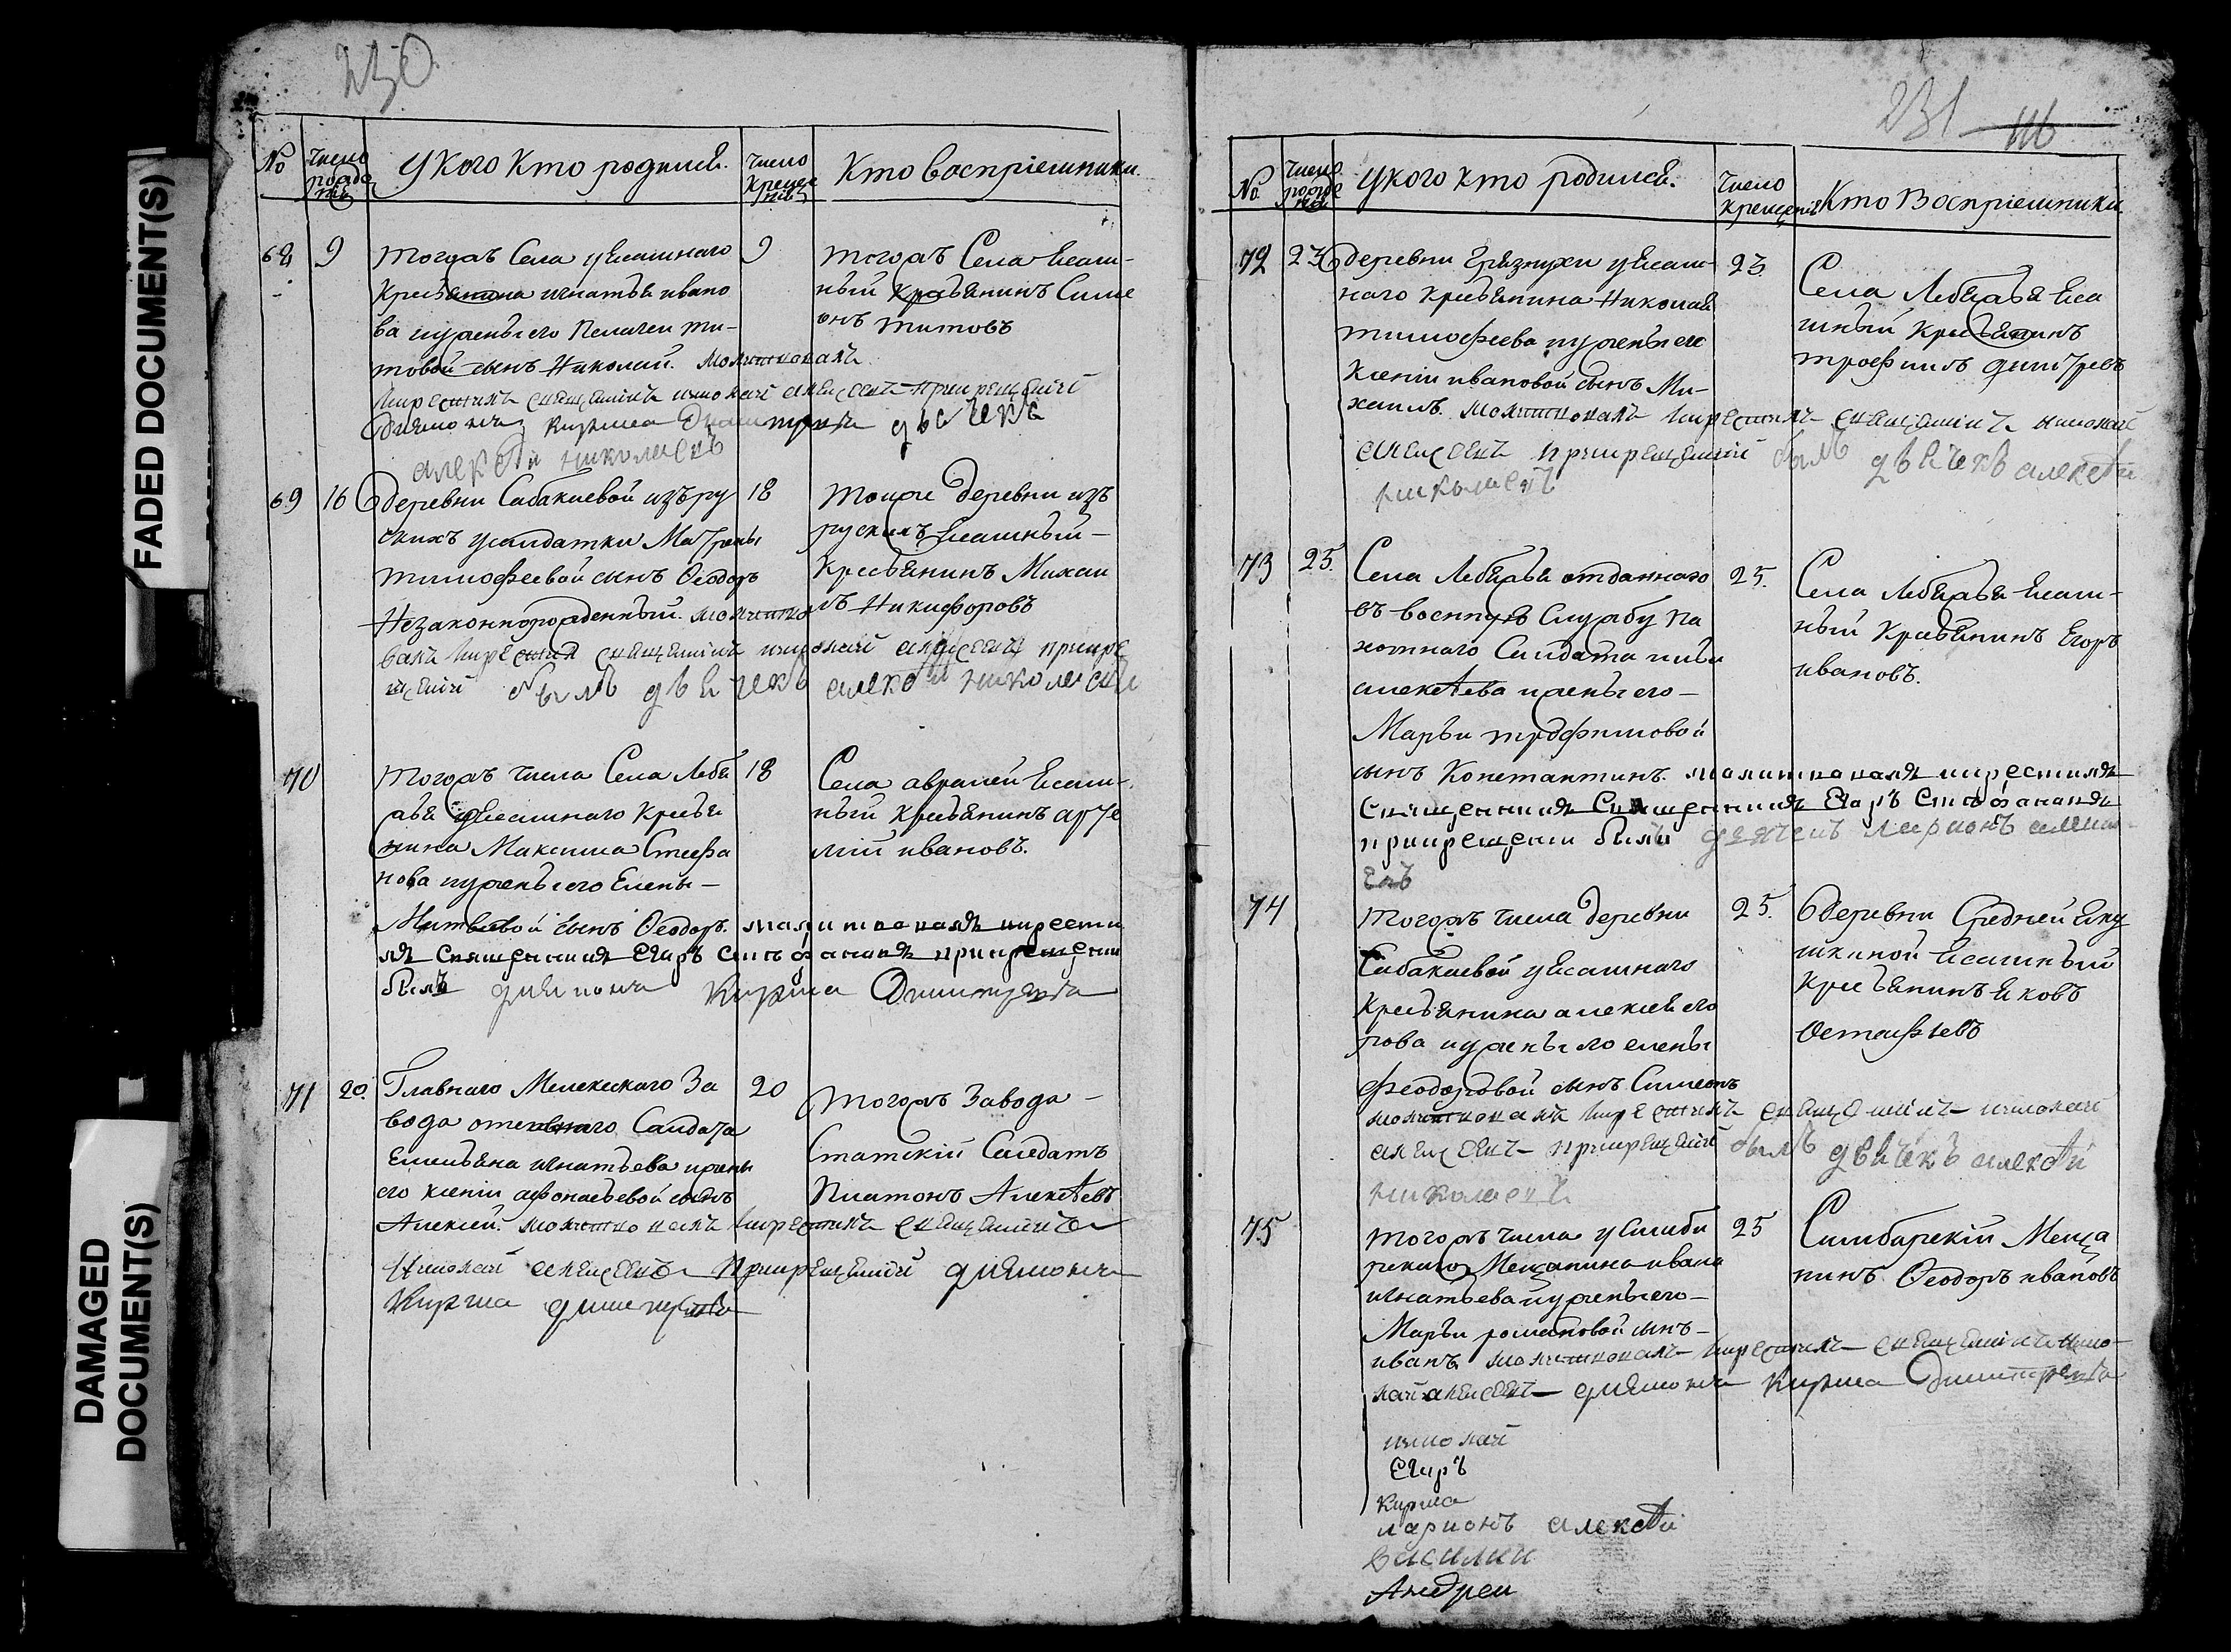 FADED DOCUMENT(S)
DAMAGED
DOCUMENT(S)
230
№
Число рожде нія
У кого кто родился.
Число креще нія
Кто воспріемники.
68
9
Тогожъ Села уясашнаго
кресьянина игнатья ивано
ва ижены его Пелагеи ти-
товой сынъ Николай. молитвовалъ
икрестилъ священникъ николай алексеевъ прикрещеніи
дьяконъ кирила Димитріевъ дьячекъ
алексѣй николаевъ
9
тогожъ Села ясаш-
ный кресьянинъ Симе
онъ титовъ
69
16
деревни Сабакаевой изъ ру
скихъ усалдатки Матрены
тимофеевой сынъ Ѳеодоръ
Незаконнорожденный. молитво
валъ икрестилъ священникъ николай алексеевъ прикре
щеніи былъ дьячекъ алексѣй николаевъ
18
тоиже деревни изъ
рускихъ ясашный
кресьянинъ Михаи
лъ Никифоровъ
70
Тогожъ числа Села Лебя
жья уясашнаго кресья
нина Максима Стефа
нова ижены его Елены
Матвѣевой сынъ Ѳеодоръ. малитвовалъ икрести
лъ священникъ Егаръ Стефановъ прикрещении
былъ дьяконъ Кирила Димитріевъ
18
Села авралей Ясаш-
ный кресьянинъ арте
мій ивановъ.
71
20.
Главнаго Мелекескаго За
вода отставнаго Салдата
Емельяна игнатьева ижены
его ксеніи афонасьевой сынъ
Алексей. молитвовалъ икрестилъ священникъ
Николай алексеевъ Прикрещеніи дьяконъ
Кирила димитріевъ
20
Тогожъ Завода
Статскій Салдатъ
Платонъ Алексѣевъ
231
116
№
Число рожде нія
У кого кто родился.
Число крещенія
Кто Воспріемники
72
23
деревни Грязнухи уясаш-
наго кресьянина Николая
тимофеева ижены его
Ксеніи ивановой сынъ Ми-
хаилъ. молитвовалъ икрестилъ священникъ николай
алексеевъ прикрещеніи былъ дьячекъ алексѣй
николаевъ
23
Села Лебяжья яса
шный кресьянинъ
трофимъ димитревъ
73
25.
Села Лебяжья отданнаго
въ военную Службу па
хотнаго Салдата ильи
алексѣева ижены его
Марьи трофимовой
сынъ Константинъ. малитвовалъ икрестилъ
Священникъ Егаръ Стефановъ
прикрещении былъ дьячекъ ларионъ алексе
евъ
25.
Села Лебяжья ясаш-
ный Кресьянинъ Егоръ
ивановъ.
74
тогожъ числа деревни
Сабакаевой уясашнаго
кресьянина алексея его
рова ижены его елены
Феодоровой сынъ Симеонъ
молитвовалъ икрестилъ священникъ николай
алексеевъ прикрещеніи былъ дьячекъ алексѣй
николаевъ
25.
деревни Средней Яку
шкиной ясашный
кресьянинъ яковъ
Остафьевъ
75
тогожъ числа усимби
рскаго Мещанина ивана
игнатьева ижены его
Марьи романовой сынъ
иванъ молитвовалъ икрестилъ священникъ нико-
лай алексеевъ дьяконъ кирила Димитріевъ
25
Симбирскій Меща
нинъ Ѳеодоръ ивановъ
николай
Егаръ
Кирила
ларионъ алексѣй
василии
Андреи